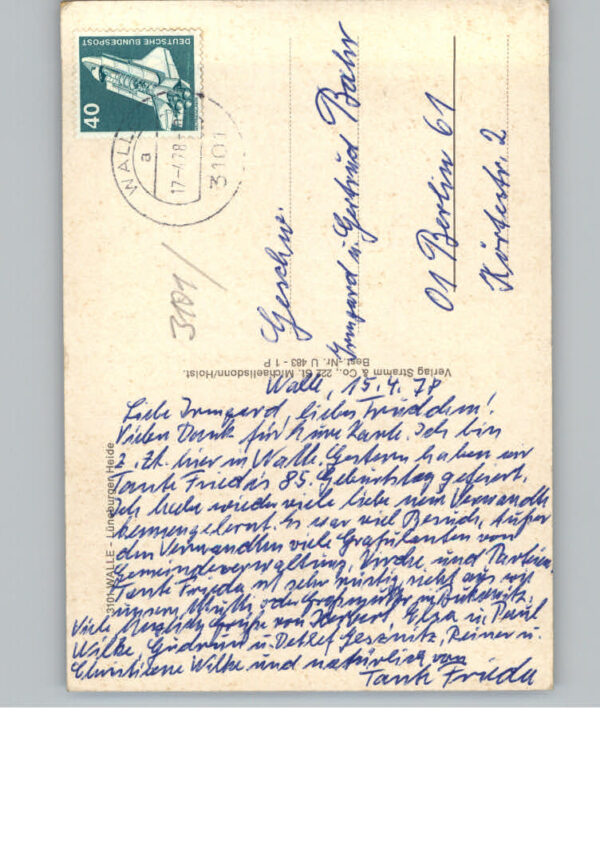 DEUTSCHE BUNDESPOST
40
WALLE
a
17.-4.78
3101
3101/
Geschw.
Irmgard u. Gertrud Bahr
01 Berlin 61
Körtestr. 2
Verlag Stramm & Co., 222 St. Michaelisdonn/Holst.
Best.-Nr. U 483 - 1 P
3101 WALLE - Lüneburger Heide
Walle, 15.4.78
Liebe Irmgard, liebes Trudchen!
Vielen Dank für Eure Karte. Ich bin
z. Zt. hier in Walle. Gestern haben wir
Tante Friedas 85. Geburtstag gefeiert.
Ich habe wieder viele liebe neue Verwandte
kennengelernt. Es war viel Besuch, außer
den Verwandten viele Gratulanten von
Gemeindeverwaltung, Kirche und Parteien.
Tante Frieda ist sehr rüstig, sieht aus wie
unsere Mutti oder Großmutter in
Viele herzliche Grüße von Herbert, Elsa u. Paul
Wilke, Gudrun u. Detlef Jesznitz, Reiner u.
Christilene Wilke und natürlich von
Tante Frieda